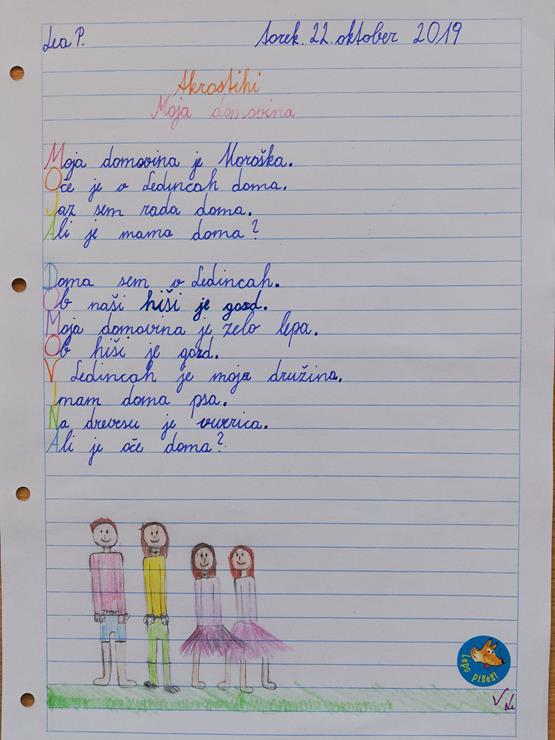 Lea P.
torek. 22. oktober 2019
Akrostihi
Moja domovina
Moja domovina je Koroška.
Oče je v Ledincah doma.
Jaz sem rada doma.
Ali je mama doma?
Doma sem v Ledincah.
Ob naši hiši je gozd.
Moja domovina je zelo lepa.
Ob hiši je gozd.
V Ledincah je moja družina.
Imam doma psa.
Na drevesu je veverica.
Ali je oče doma?
Lepo pišeš!